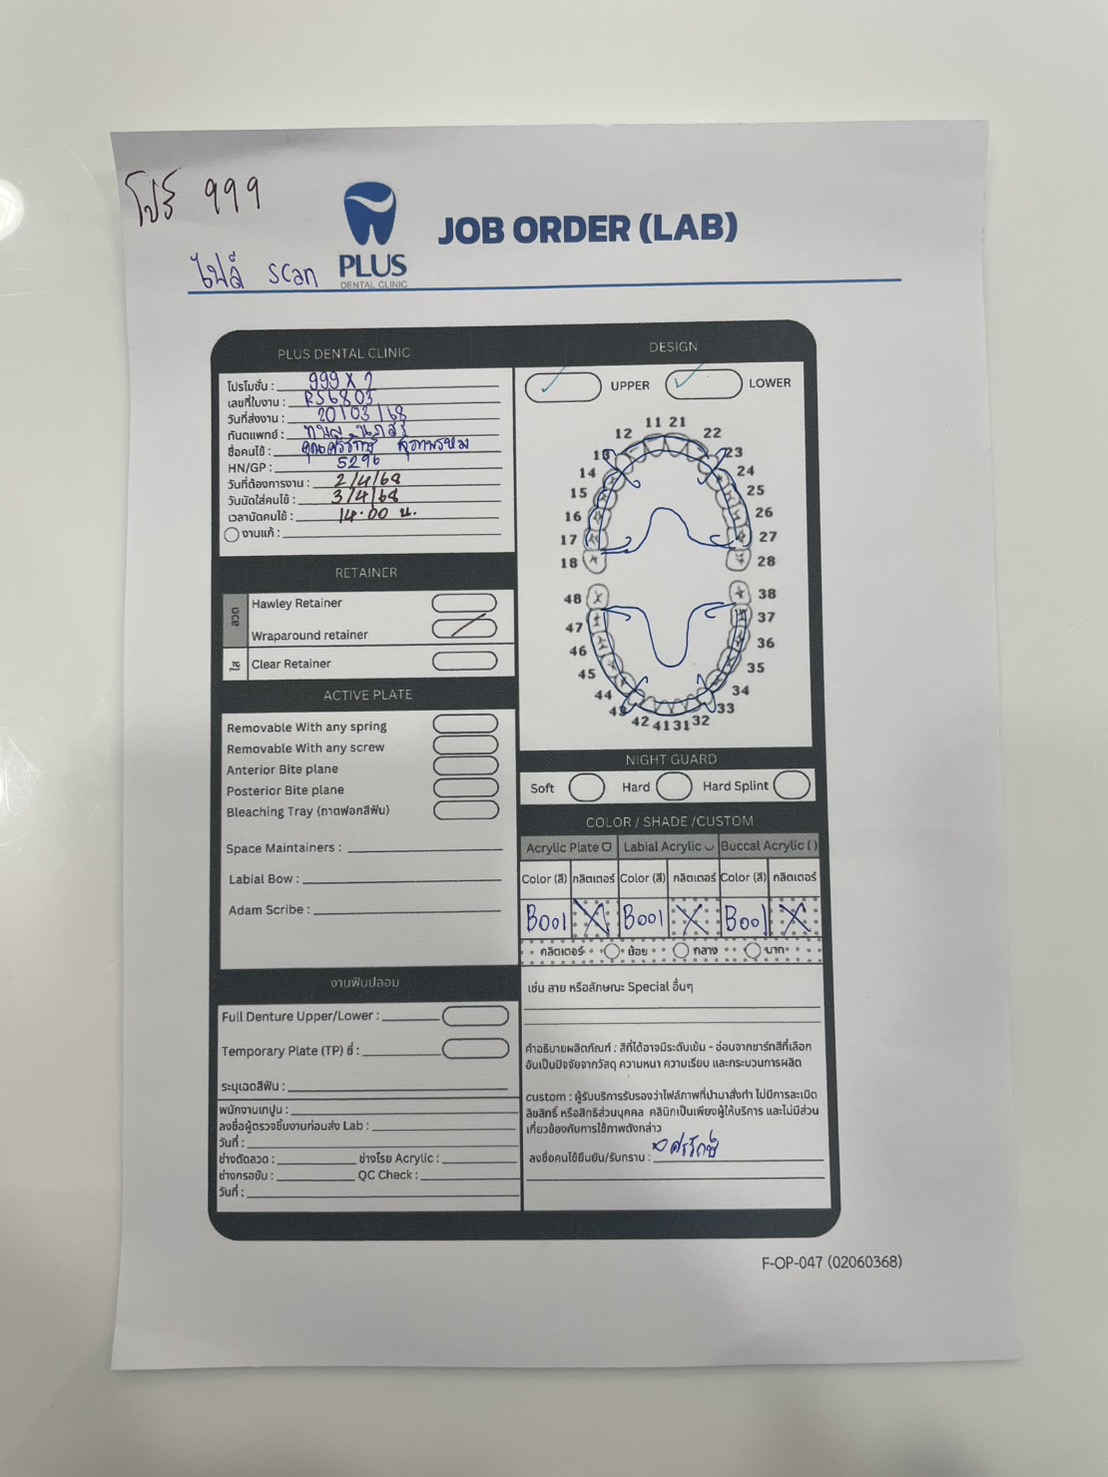 โปร 999
ไฟล์ scan
PLUS
DENTAL CLINIC
JOB ORDER (LAB)
PLUS DENTAL CLINIC
โปรโมชั่น : 999 x 2
เลขที่ใบงาน : RS6803
วันที่ส่งงาน : 20/03/68
ทันตแพทย์ :
ชื่อคนไข้ :
HN/GP : 5296
วันที่ต้องการงาน : 2/4/68
วันนัดใส่คนไข้ : 3/4/68
เวลานัดคนไข้ : 14.00 น.
งานแก้ :
RETAINER
ลวด
Hawley Retainer
Wraparound retainer
ใส
Clear Retainer
ACTIVE PLATE
Removable With any spring
Removable With any screw
Anterior Bite plane
Posterior Bite plane
Bleaching Tray (ถาดฟอกสีฟัน)
Space Maintainers :
Labial Bow :
Adam Scribe :
งานฟันปลอม
Full Denture Upper/Lower :
Temporary Plate (TP) ซี่ :
ระบุเฉดสีฟัน :
พนักงานเทปูน :
ลงชื่อผู้ตรวจชิ้นงานก่อนส่ง Lab :
วันที่ :
ช่างดัดลวด : ช่างโรย Acrylic :
ช่างกรอขัด : QC Check :
วันที่ :
DESIGN
UPPER LOWER
11 21
12 22
13 23
14 24
15 25
16 26
17 27
18 28
48 38
47 37
46 36
45 35
44 34
43 33
42 41 31 32
NIGHT GUARD
Soft Hard Hard Splint
COLOR / SHADE /CUSTOM
Acrylic Plate Labial Acrylic Buccal Acrylic ( )
Color (สี) กลิตเตอร์ Color (สี) กลิตเตอร์ Color (สี) กลิตเตอร์
B001 X B001 X B001 X
กลิตเตอร์ น้อย กลาง มาก
เช่น ลาย หรือลักษณะ Special อื่นๆ
คำอธิบายผลิตภัณฑ์ : สีที่ได้อาจมีระดับเข้ม - อ่อนจากชาร์ทสีที่เลือก
อันเป็นปัจจัยจากวัสดุ ความหนา ความเรียบ และกระบวนการผลิต
custom : ผู้รับบริการรับรองว่าไฟล์ภาพที่นำมาสั่งทำ ไม่มีการละเมิด
ลิขสิทธิ์ หรือสิทธิส่วนบุคคล คลินิกเป็นเพียงผู้ให้บริการ และไม่มีส่วน
เกี่ยวข้องกับการใช้ภาพดังกล่าว
ลงชื่อคนไข้ยืนยัน/รับทราบ :
F-OP-047 (02060368)